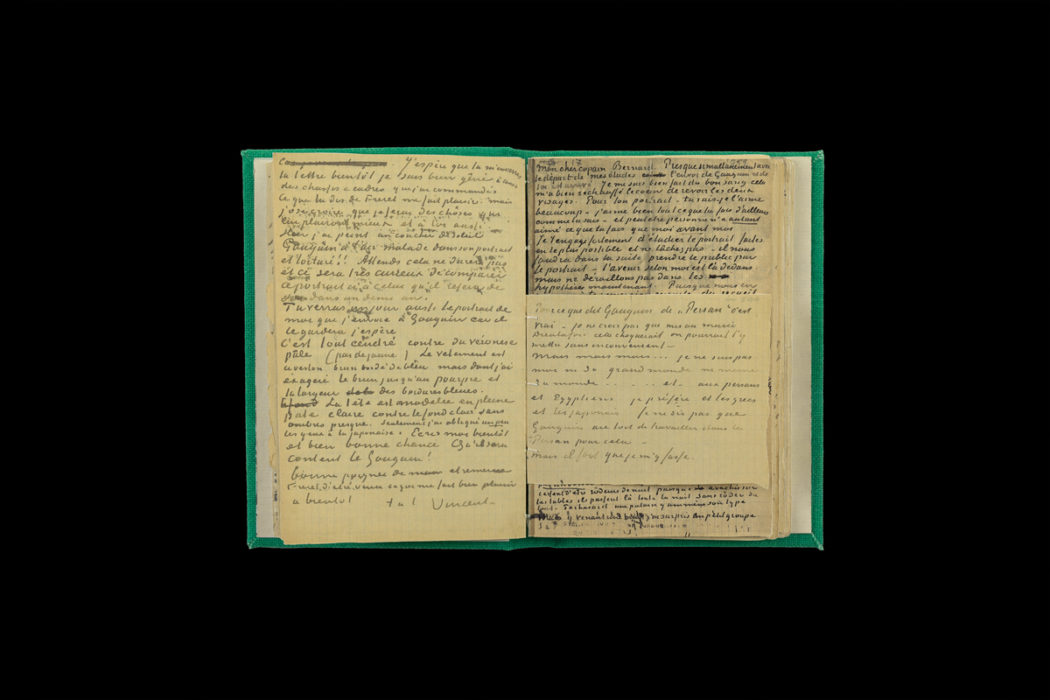 J'espère que tu m'enverras
ta lettre bientôt je suis bien gêné à cause
des chassis & cadres que j'ai commandés
Ce que tu dis de Freret me fait plaisir mais
j'ose croire que je ferai des choses qui
lui plairont mieux et à toi aussi.
Hier j'ai peint un coucher de soleil
Gauguin a l'air malade dans son portrait
et torturé!! Attends cela ne durera pas
et ce sera très curieux de comparer
ce portrait ci à celui qu'il refera de
dans un demi an.
Tu verras un jour aussi le portrait de
moi que j'envoie à Gauguin car il
le gardera j'espère
C'est tout cendré contre du veronese
pâle (pas de jaune) Le vêtement est
ce veston brun bordé de bleu mais dont j'ai
exagéré le brun jusqu'au pourpre et
la largeur des bordures bleues.
La tête est modelée en pleine
pâte claire contre le fond clair sans
ombres presque. Seulement j'ai obliqué un peu
les yeux à la japonaise. Ecris moi bientôt
et bien bonne chance Qu'il sera
content le Gauguin!
bonne poignée de main et remercie
Freret, d'être venu ce qui me fait bien plaisir
a bientôt t. à t. Vincent
Mon cher copain Bernard. Presque simultanément avec
le départ de mes études l'envoi de Gauguin & de
toi est arrivé. Je me suis bien fait du bon sang cela
m'a bien réchauffé le coeur de revoir les deux
visages. Pour ton portrait – tu sais je l'aime
beaucoup – j'aime bien tout ce que tu fais d'ailleurs
comme tu sais – et peut être personne n'a autant
aimé ce que tu fais que moi avant moi
Je t'engage fortement d'étudier le portrait faites
en le plus possible et ne lâchez pas – il nous
faudra dans la suite prendre le public par
le portrait – l'avenir selon moi est là dedans
mais ne déraillons pas dans les
hypothèses maintenant. Puisque nous en
Pour ce que dit Gauguin de „Persan” c'est
vrai – je ne crois pas que mis au musée
cela choquerait on pourrait l'y
mettre sans inconvénient –
Mais mais mais ... je ne suis pas
moi ni du grand monde ni même
du monde ..... et – aux persans
et Egyptiens je préfère et les grecs
et les japonais. Je ne dis pas que
Gauguin aie tort de travailler dans le
Persan pour cela –
Mais il faut que je m'y fasse.
la nuit sans